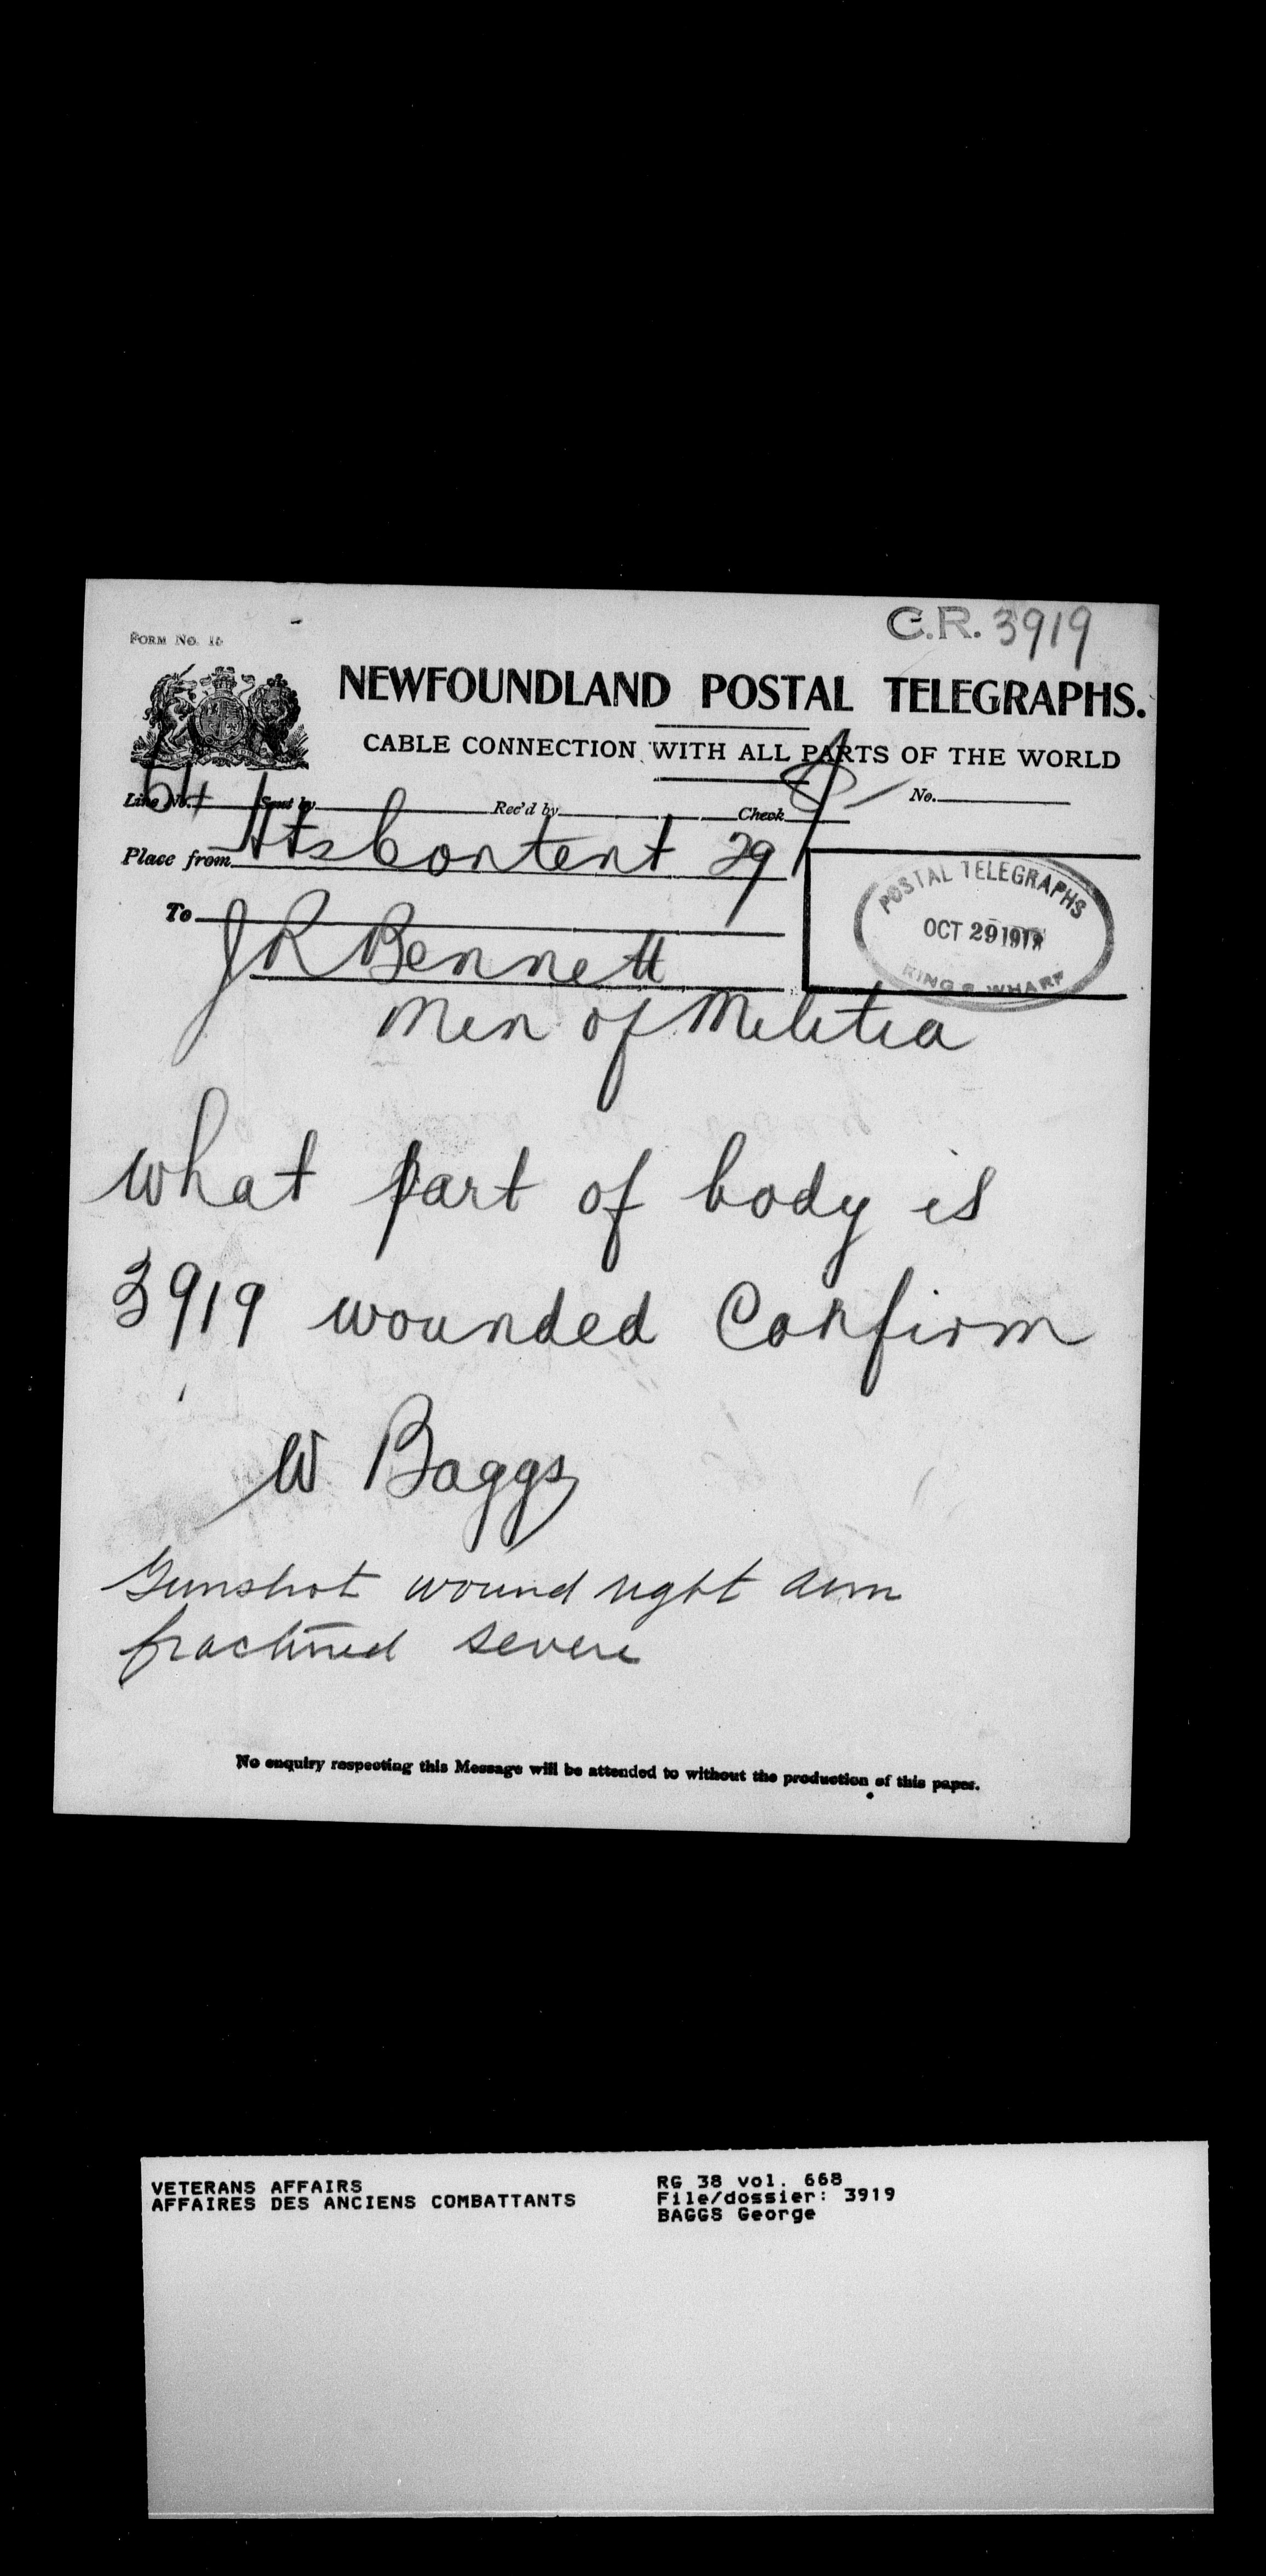 C.R. 3919
FORM No. 15
NEWFOUNDLAND POSTAL TELEGRAPHS.
CABLE CONNECTION WITH ALL PARTS OF THE WORLD
Line No. Sent by Rec'd by Check No.
Place from Hts Content 29
POSTAL TELEGRAPHS
OCT 29
KING'S WHARF
To J R Bennett
Min of Militia
what part of body is
3919 wounded Confirm
W Baggs
Gunshot wound right arm
fractured severe
No enquiry respecting this Message will be attended to without the production of this paper.
VETERANS AFFAIRS
AFFAIRES DES ANCIENS COMBATTANTS
RG 38 vol. 668
File/dossier: 3919
BAGGS George